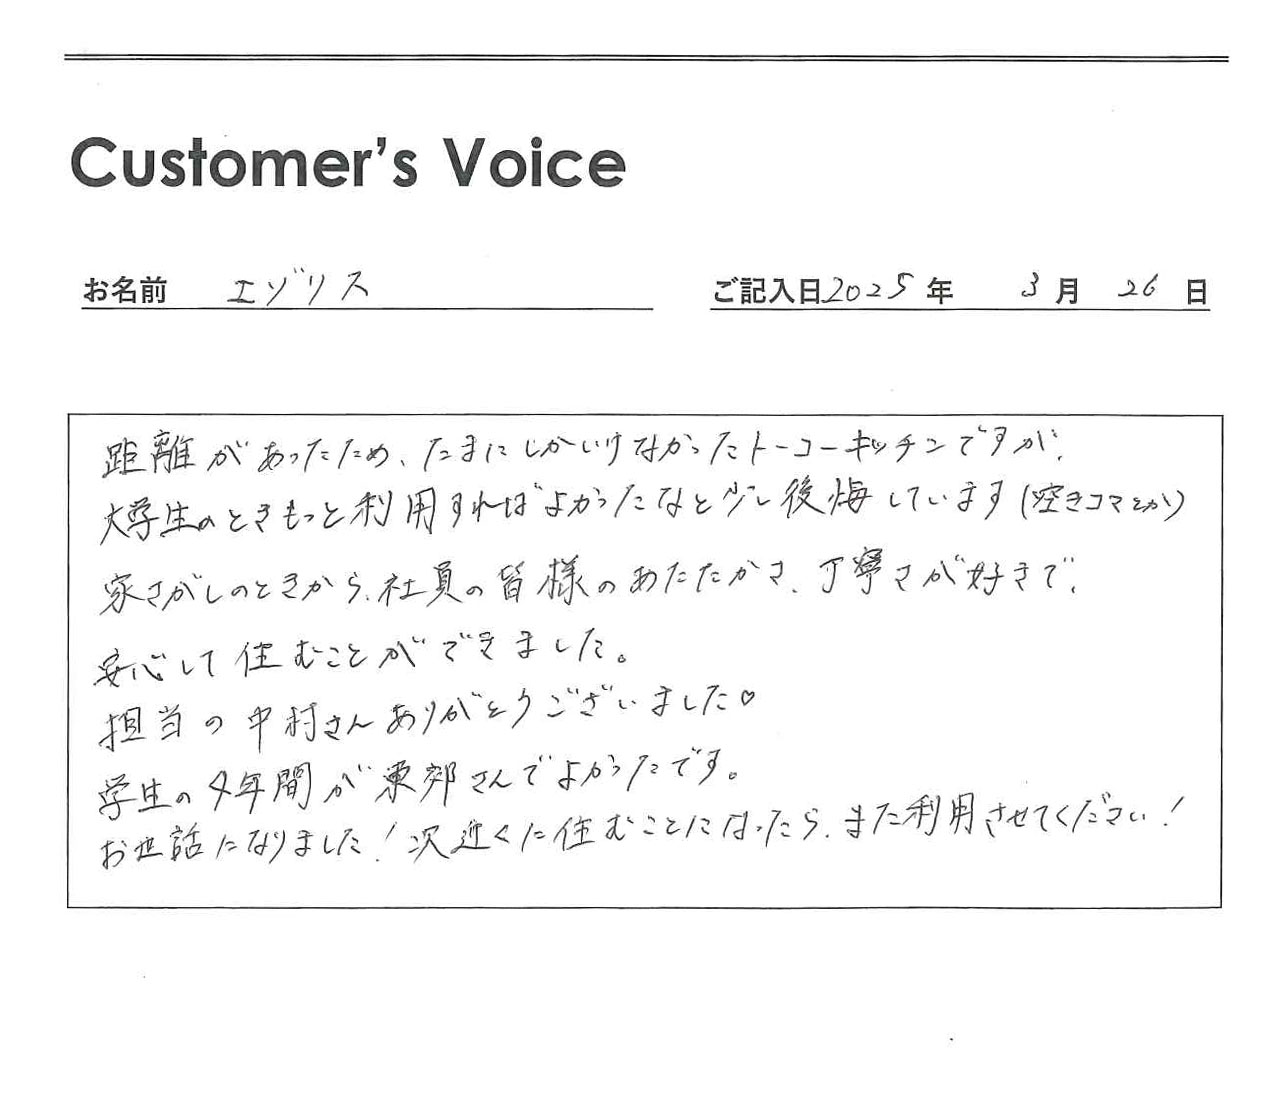 Customer's Voice
お名前 エゾリス
ご記入日 2025年 3月 26日
距離があったため、たまにしかいけなかったトーコーキッチンですが、
大学生のときもっと利用すればよかったなと少し後悔しています(空きコマとか)
家さがしのときから、社員の皆様のあたたかさ、丁寧さが好きで、
安心して住むことができました。
担当の中村さんありがとうございました♡
学生の4年間が東郊さんでよかったです。
お世話になりました!次近くに住むことになったら、また利用させてください!